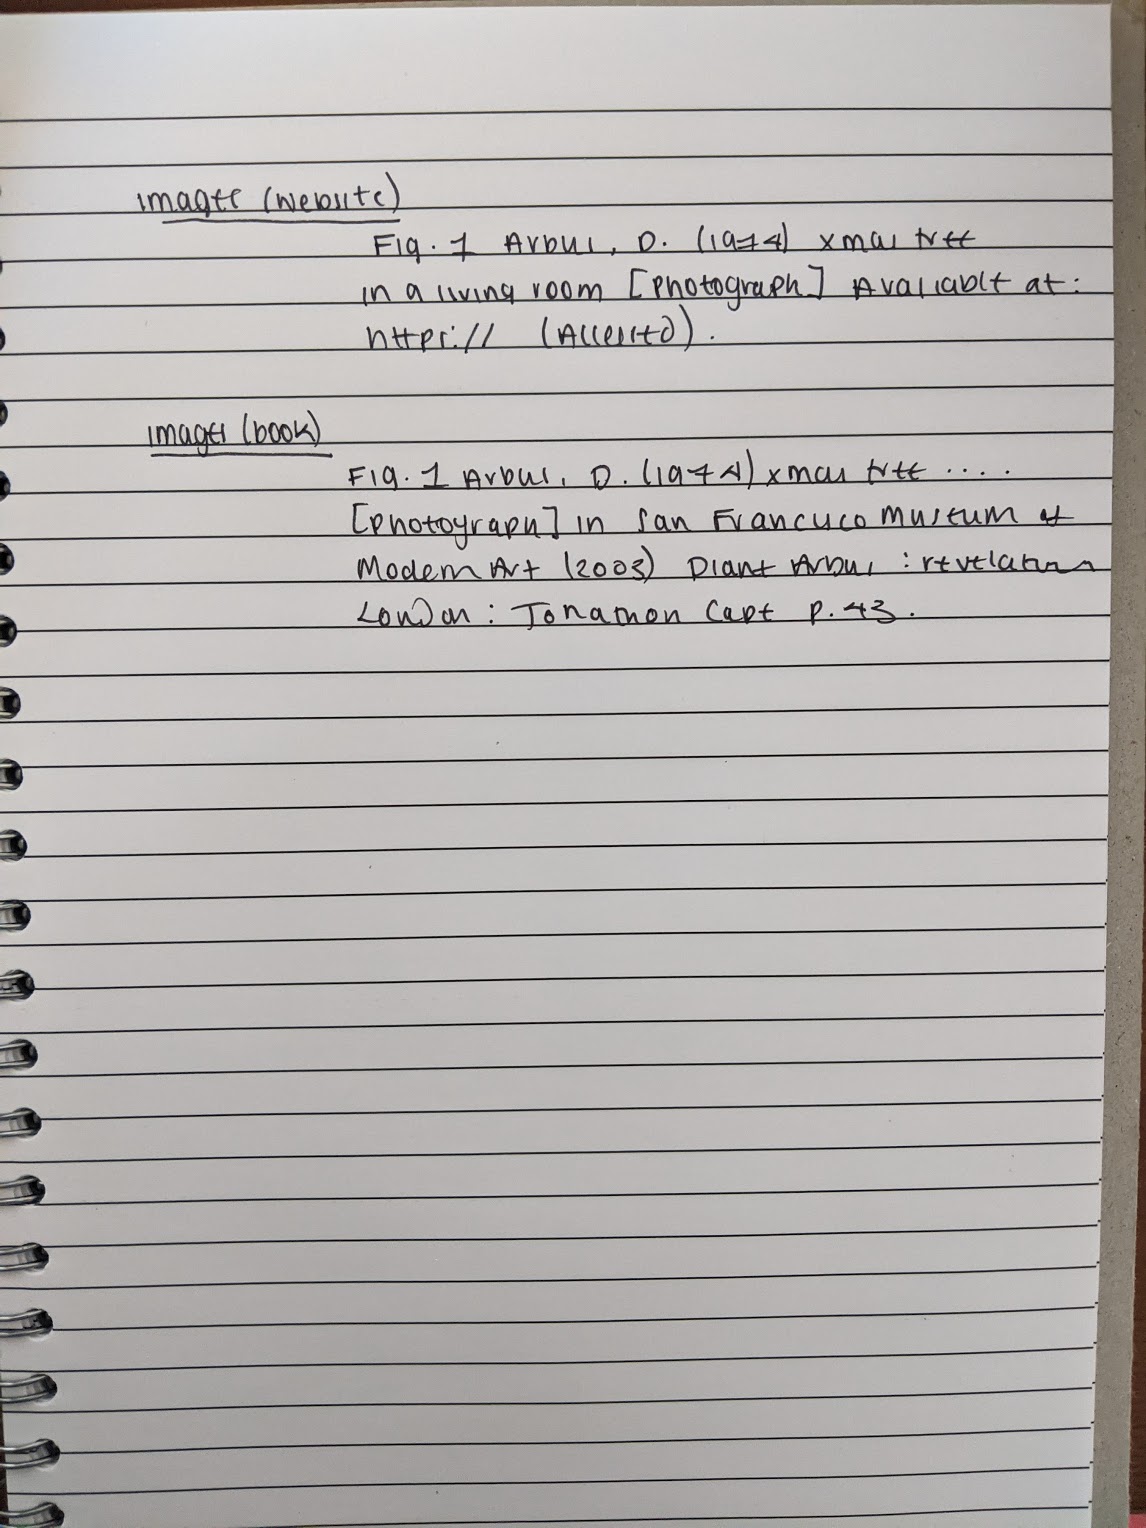 images (website)
Fig. 1 Arbus, D. (1974) xmas tree
in a living room [photograph] Available at:
https:// (Accessed).
images (book)
Fig. 1 Arbus, D. (1974) xmas tree ....
[photograph] in San Francisco Museum of
Modern Art (2003) Diane Arbus : revelations
London : Jonathon Cape p. 43.